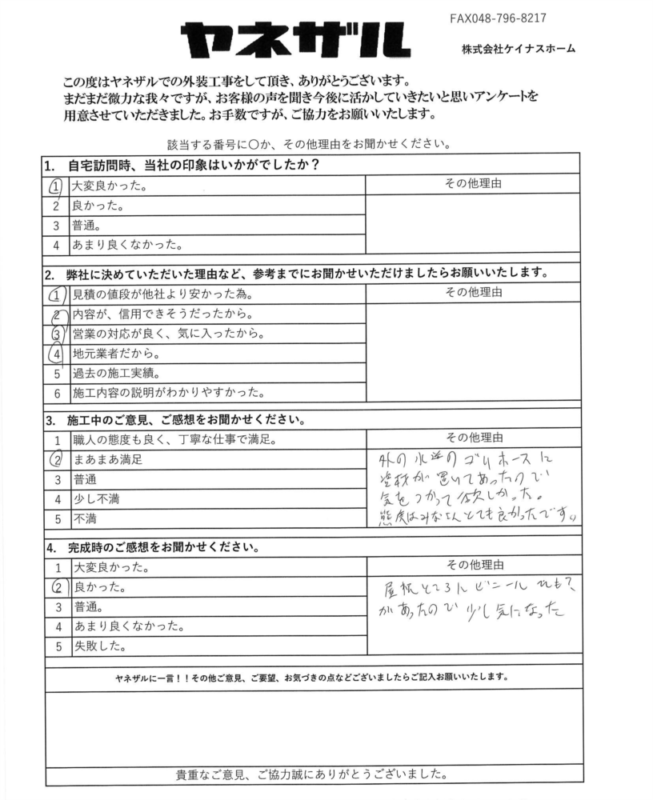 FAX048-796-8217
ヤネザル
株式会社ケイナスホーム
この度はヤネザルでの外装工事をして頂き、ありがとうございます。
まだまだ微力な我々ですが、お客様の声を聞き今後に活かしていきたいと思いアンケートを
用意させていただきました。お手数ですが、ご協力をお願いいたします。
該当する番号に〇か、その他理由をお聞かせください。
1. 自宅訪問時、当社の印象はいかがでしたか？
1 大変良かった。 その他理由
2 良かった。
3 普通。
4 あまり良くなかった。
2. 弊社に決めていただいた理由など、参考までにお聞かせいただけましたらお願いいたします。
1 見積の値段が他社より安かった為。 その他理由
2 内容が、信用できそうだったから。
3 営業の対応が良く、気に入ったから。
4 地元業者だから。
5 過去の施工実績。
6 施工内容の説明がわかりやすかった。
3. 施工中のご意見、ご感想をお聞かせください。
1 職人の態度も良く、丁寧な仕事で満足。 その他理由
2 まあまあ満足
3 普通
4 少し不満
5 不満
外の水道のゴムホースに
塗料が置いてあったので
気をつかって欲しかった。
態度はみなさんとても良かったです。
4. 完成時のご感想をお聞かせください。
1 大変良かった。 その他理由
2 良かった。
3 普通。
4 あまり良くなかった。
5 失敗した。
屋根ところに ビニール
があったので 少し気になった
ヤネザルに一言！！その他ご意見、ご要望、お気づきの点などございましたらご記入お願いいたします。
貴重なご意見、ご協力誠にありがとうございました。